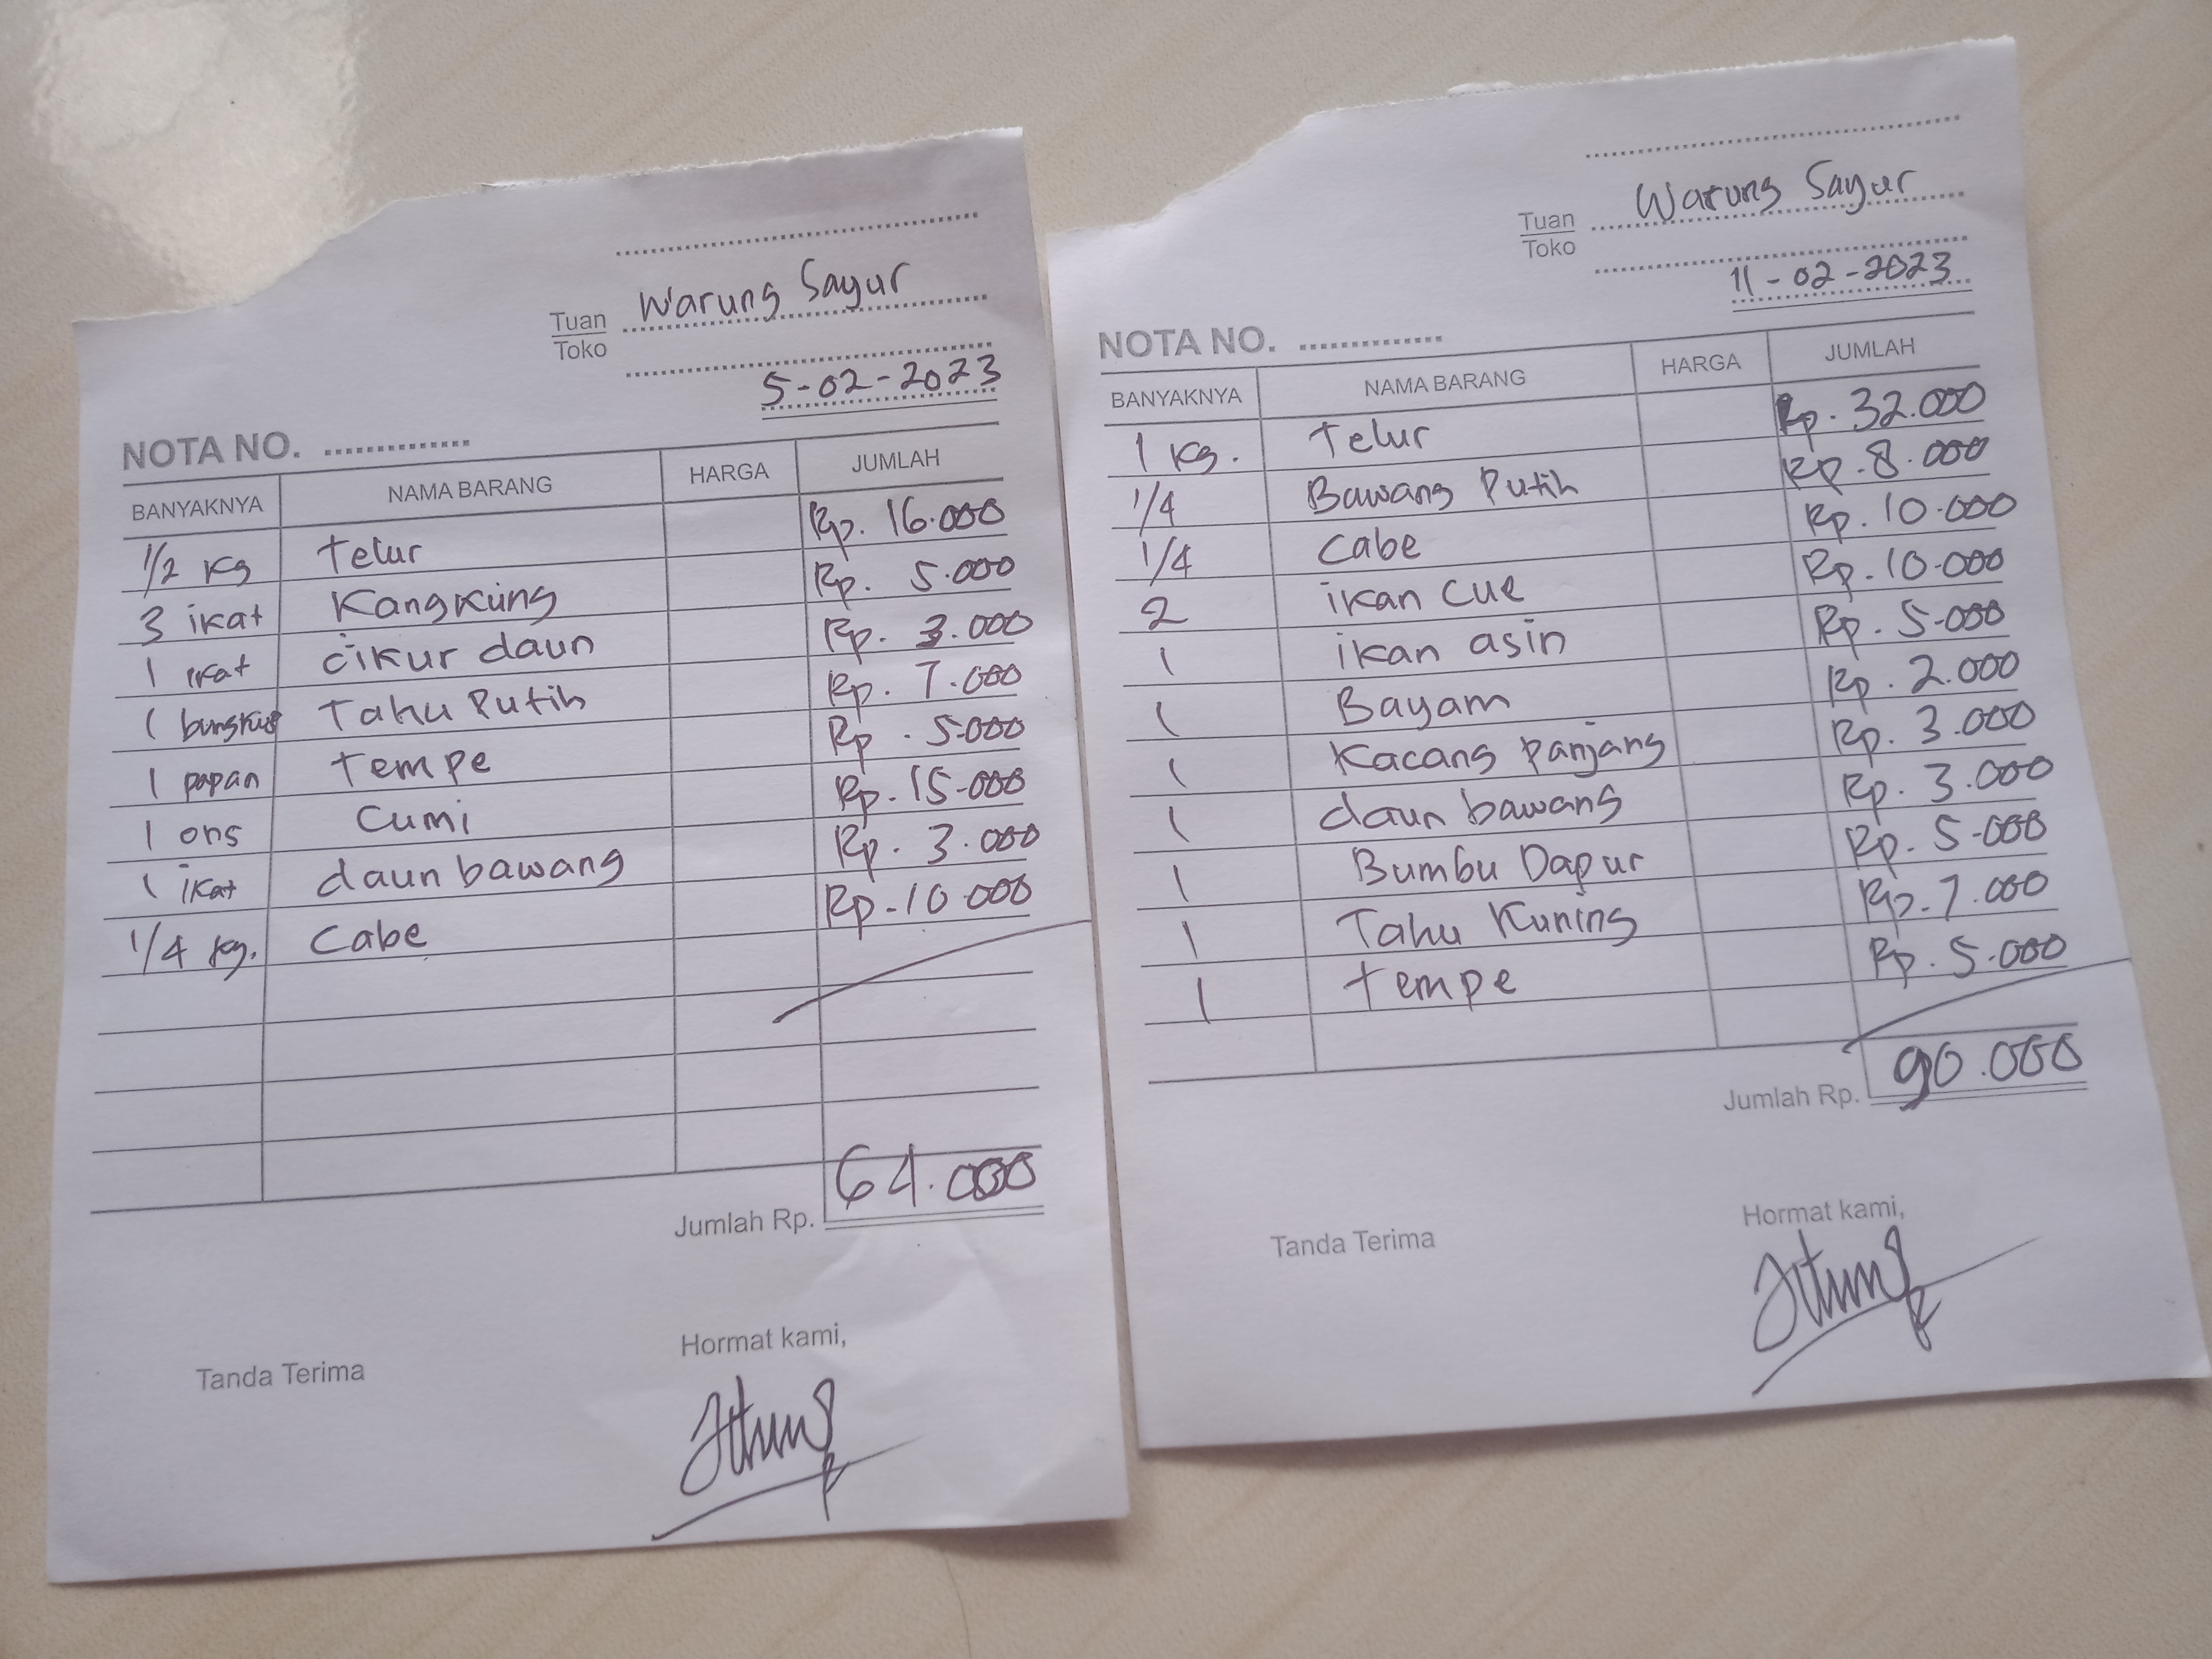 Warung Sayur
Tuan
Toko
5-02-2023
NOTA NO. ..............
BANYAKNYA NAMA BARANG HARGA JUMLAH
1/2 Kg Telur Rp. 16.000
3 ikat Kangkung Rp. 5.000
1 ikat cikur daun Rp. 3.000
1 bungkus Tahu Putih Rp. 7.000
1 papan Tempe Rp. 5.000
1 ons Cumi Rp. 15.000
1 ikat daun bawang Rp. 3.000
1/4 kg. Cabe Rp. 10.000
Jumlah Rp. 64.000
Tanda Terima Hormat kami,
Warung Sayur
Tuan
Toko
11-02-2023
NOTA NO. ..............
BANYAKNYA NAMA BARANG HARGA JUMLAH
1 Kg. Telur Rp. 32.000
1/4 Bawang Putih Rp. 8.000
1/4 Cabe Rp. 10.000
2 ikan Cue Rp. 10.000
1 ikan asin Rp. 5.000
1 Bayam Rp. 2.000
1 Kacang Panjang Rp. 3.000
1 daun bawang Rp. 3.000
1 Bumbu Dapur Rp. 5.000
1 Tahu Kuning Rp. 7.000
1 tempe Rp. 5.000
Jumlah Rp. 90.000
Tanda Terima Hormat kami,